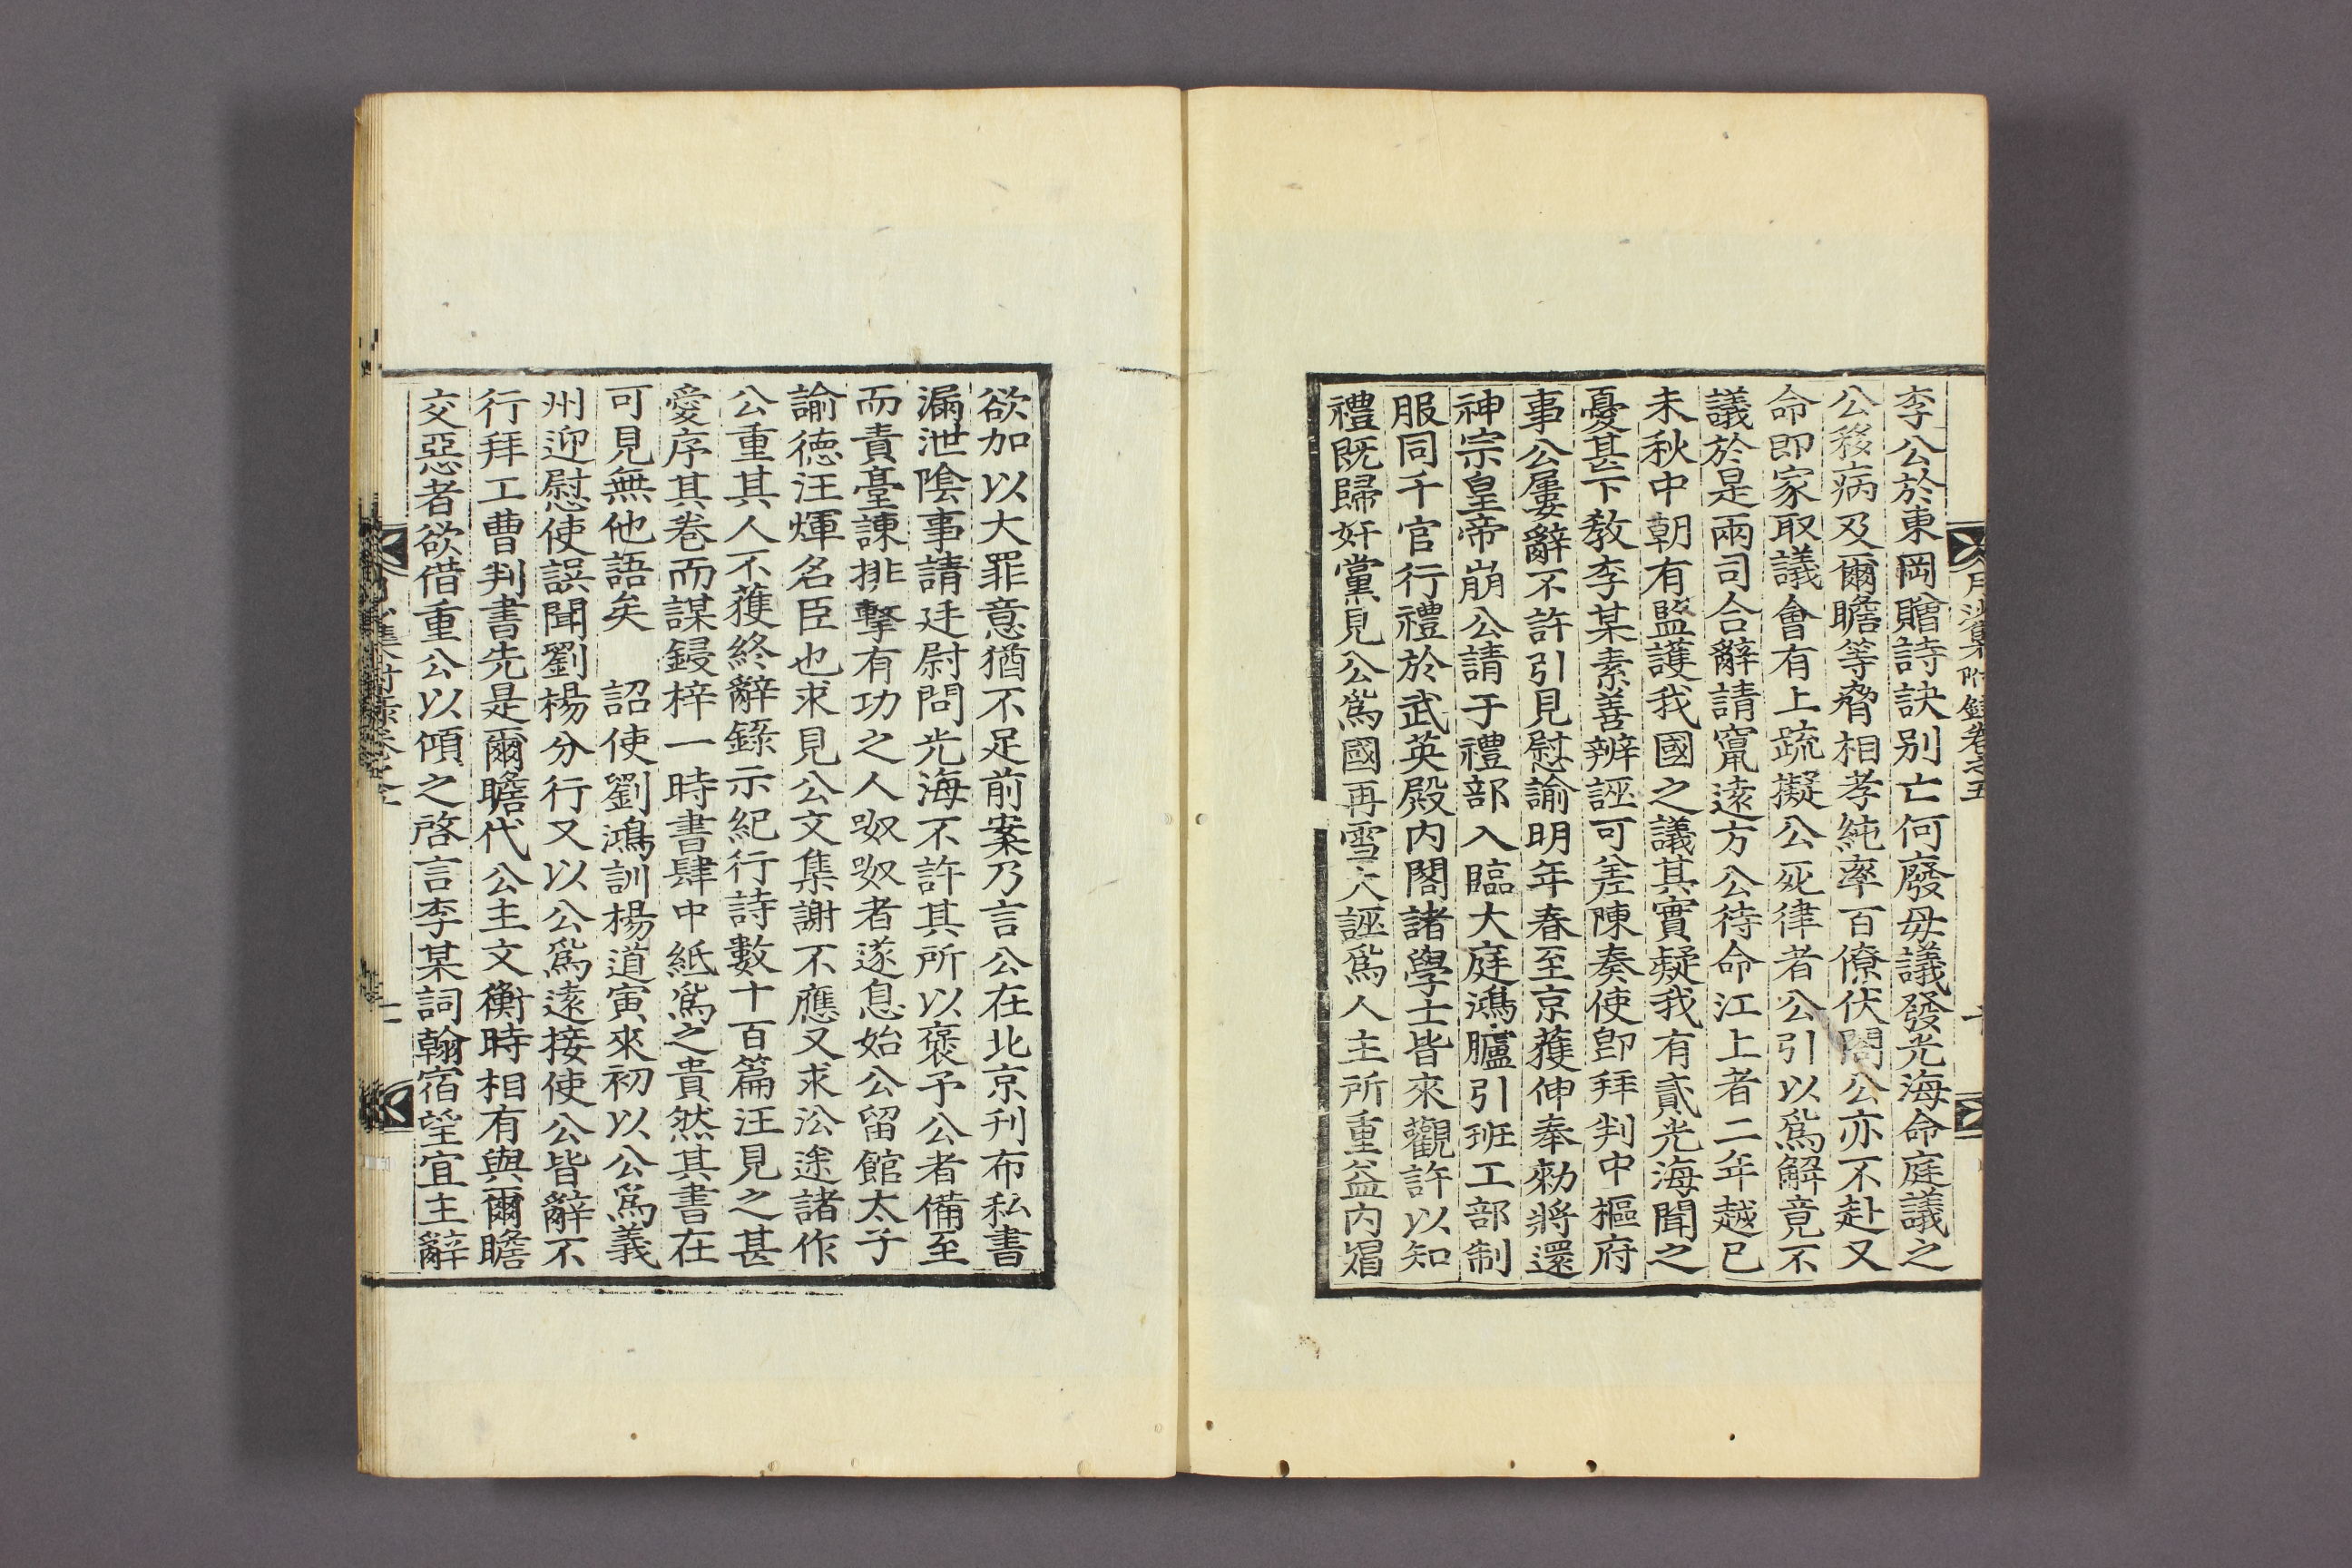 月沙集附錄卷之五
李公於東岡贈詩訣別亡何廢毋議發光海命庭議之
公移病及爾瞻等脅相孝純率百僚伏閤公亦不赴又
命即家取議會有上疏擬公死律者公引以爲解竟不
議於是兩司合辭請竄遠方公待命江上者二年越已
未秋中朝有監護我國之議其實疑我有貳光海聞之
憂甚下敎李某素善辨誣可差陳奏使卽拜判中樞府
事公屢辭不許引見慰諭明年春至京獲伸奉勑將還
神宗皇帝崩公請于禮部入臨大庭鴻臚引班工部制
服同千官行禮於武英殿內閣諸學士皆來觀許以知
禮既歸奸黨見公爲國再雪大誣爲人主所重益內猖
欲加以大罪意猶不足前案乃言公在北京刊布私書
漏泄陰事請廷尉問光海不許其所以褒予公者備至
而責臺諫排擊有功之人呶呶者遂息始公留館太子
諭德汪煇名臣也求見公文集謝不應又求㳂途諸作
公重其人不獲終辭錄示紀行詩數十百篇汪見之甚
愛序其卷而謀鋟梓一時書肆中紙爲之貴然其書在
可見無他語矣　詔使劉鴻訓楊道寅來初以公爲義
州迎慰使誤聞劉楊分行又以公爲遠接使公皆辭不
行拜工曹判書先是爾瞻代公主文衡時相有與爾瞻
交惡者欲借重公以傾之啓言李某詞翰宿望宜主辭